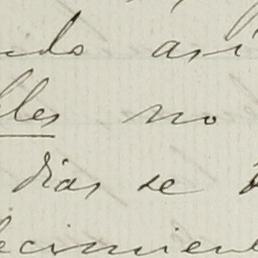 ndo así
lles no
dias se
ecimien